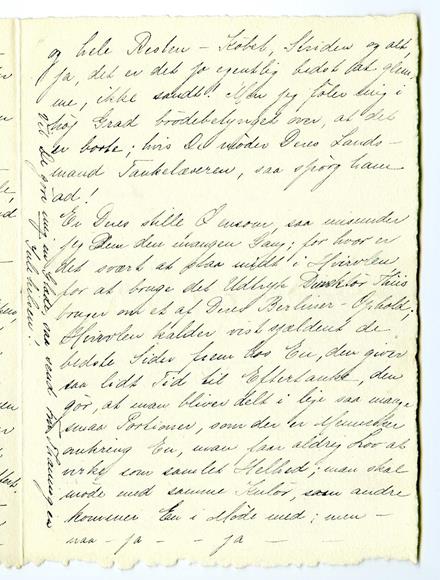 og hele Resten – Købet, Striden og alt,
ja, det er det jo egentlig bedst at glem-
me, ikke sandt! Men jeg føler mig i
høj Grad brødebetynget over, at det
er borte; hvis De møder Deres Lands-
mand Tankelæseren, saa spørg ham
ad!
Er Deres stille Ø ensom, saa misunder
jeg Dem den mangen Gang; for hvor er
det svært at staa midt i Hvirvlen
for at bruge det Udtryk Direktør Thiis
bruger om et af Deres Berliner-Ophold;
Hvirvlen kalder vist sjældent de
bedste Sider frem hos En, den giver
saa lidt Tid til Eftertanke, den
gør, at man bliver delt i lige saa mange
smaa Portioner, som der er Mennesker
omkring En, man faar aldrig Lov at
virke som samlet Helhed; man skal
møde med samme Kulør, som andre
kommer En i Møde med; men –
naa – ja – – ja – –
Vil De gøre mig en Glæde, saa send
Julehilsen!